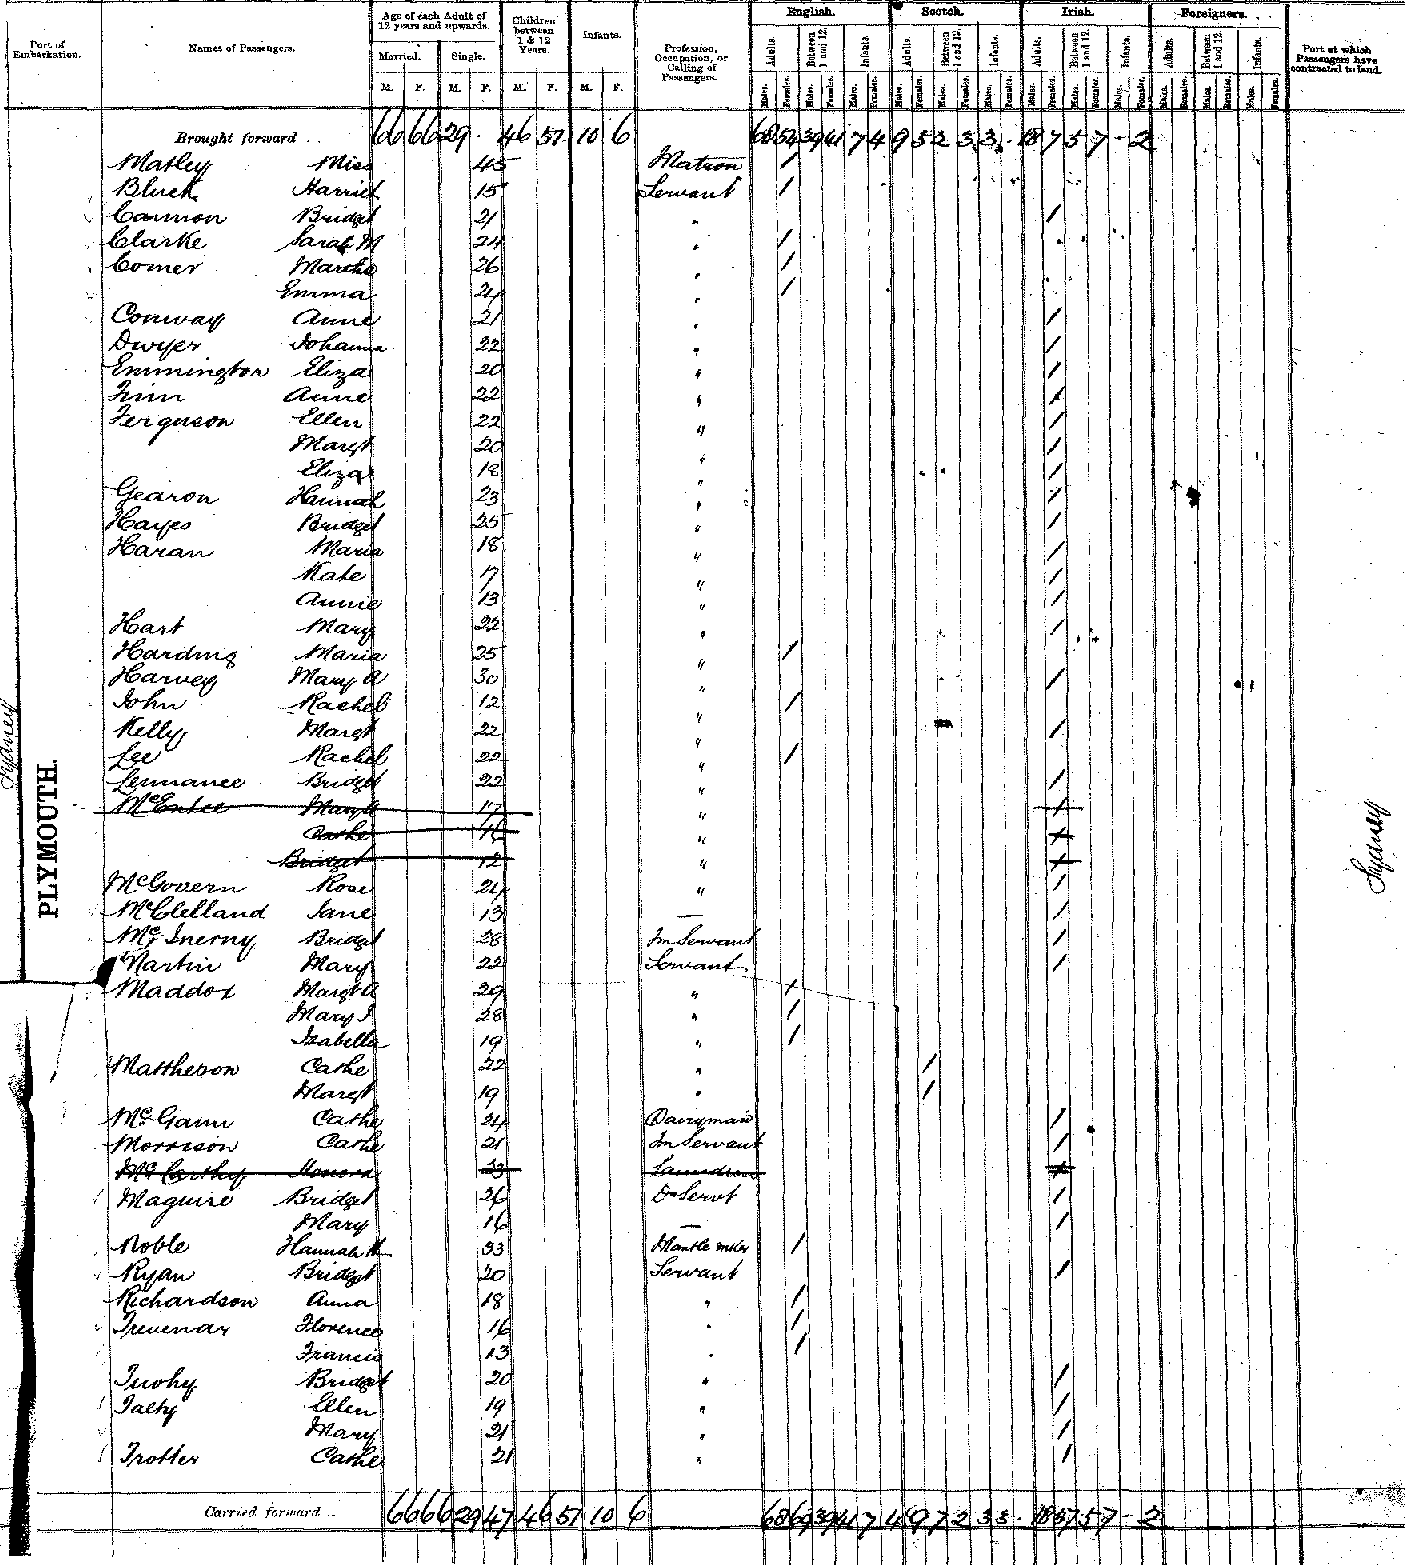 Port of Embarkation.
Names of Passengers.
Age of each Adult of 12 years and upwards.
Married. Single.
M. F. M. F.
Children between 1 & 12 Years.
M. F.
Infants.
M. F.
Profession, Occupation, or Calling of Passengers.
English. Scotch. Irish. Foreigners.
Adults. Between 1 and 12. Infants. Adults. Between 1 and 12. Infants. Adults. Between 1 and 12. Infants. Adults. Between 1 and 12. Infants.
Males. Females. Males. Females. Males. Females. Males. Females. Males. Females. Males. Females. Males. Females. Males. Females. Males. Females. Males. Females. Males. Females. Males. Females.
Port at which Passengers have contracted to land.
Brought forward 66 66 29 46 51 10 6 68 52 39 41 7 4 9 5 2 3 3 18 7 5 7 - 2
Matley Miss 45 Matron /
Bluck Harriet 15 Servant /
Cannon Bridget 21 " /
Clarke Sarah M 24 " /
Comer Martha 26 " /
Emma 24 " /
Conway Anne 21 " /
Dwyer Johanna 22 " /
Emmington Eliza 20 " /
Finn Anne 22 " /
Ferguson Ellen 22 " /
Margt 20 " /
Eliza 18 " /
Gearon Hannah 23 " /
Hayes Bridget 25 " /
Haran Maria 18 " /
Kate 17 " /
Annie 13 " /
Hart Mary 22 " /
Harding Maria 25 " /
Harvey Mary A 30 " /
John Rachel 12 " /
Kelly Margt 22 " /
Lee Rachel 22 " /
Lennance Bridget 22 " /
McEntee Mary A 17 " /
Cathe 16 " /
Bridget 12 " /
McGovern Rose 24 " /
McClelland Jane 13 — /
McInerny Bridget 28 Fm Servant /
Martin Mary 22 Servant /
Maddox Margt A 29 " /
Mary J 28 " /
Isabella 19 " /
Mattheson Cathe 22 " /
Margt 19 " /
McGann Cathe 24 Dairymaid /
Morrison Cathe 21 Fm Servant /
McCarthy Honora 23 Laundress /
Maguire Bridget 26 D Servt /
Mary 16 — /
Noble Hannah M 33 Mantle mker /
Ryan Bridget 20 Servant /
Richardson Anna 18 " /
Trevenar Florence 16 " /
Francis 13 " /
Tuohy Bridget 20 " /
Talty Ellen 19 " /
Mary 21 " /
Trotter Cathe 21 " /
Carried forward 66 66 29 47 46 51 10 6 68 69 39 41 7 4 9 7 2 3 3 18 37 5 7 - 2
PLYMOUTH.
Sydney
Sydney